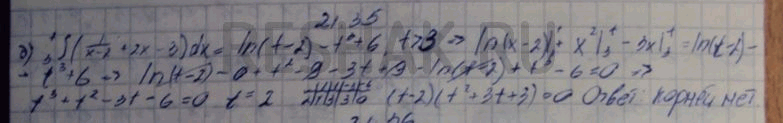 21.35
д) ₃∫ᵗ(1/(x-2) + 2x - 3)dx = ln(t-2) - t³ + 6, t>3 => ln(x-2)|₃ᵗ + x²|₃ᵗ - 3x|₃ᵗ = ln(t-2) -
- t³ + 6 => ln(t-2) - 0 + t² - 9 - 3t + 9 - ln(t-2) + t³ - 6 = 0 =>
t³ + t² - 3t - 6 = 0 t = 2 (t-2)(t² + 3t + 3) = 0 Ответ корней нет